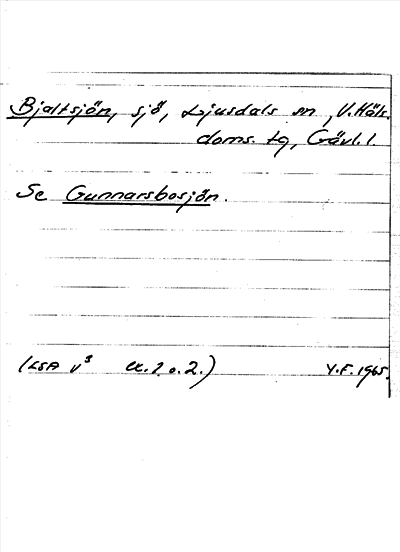 Bjaltsjön, sjö, Ljusdals sn, V. Häls.
doms. tg, Gävl. l.
Se Gunnarsbosjön.
(LSA V³ ex. 1 o. 2.) Y.F. 1965.